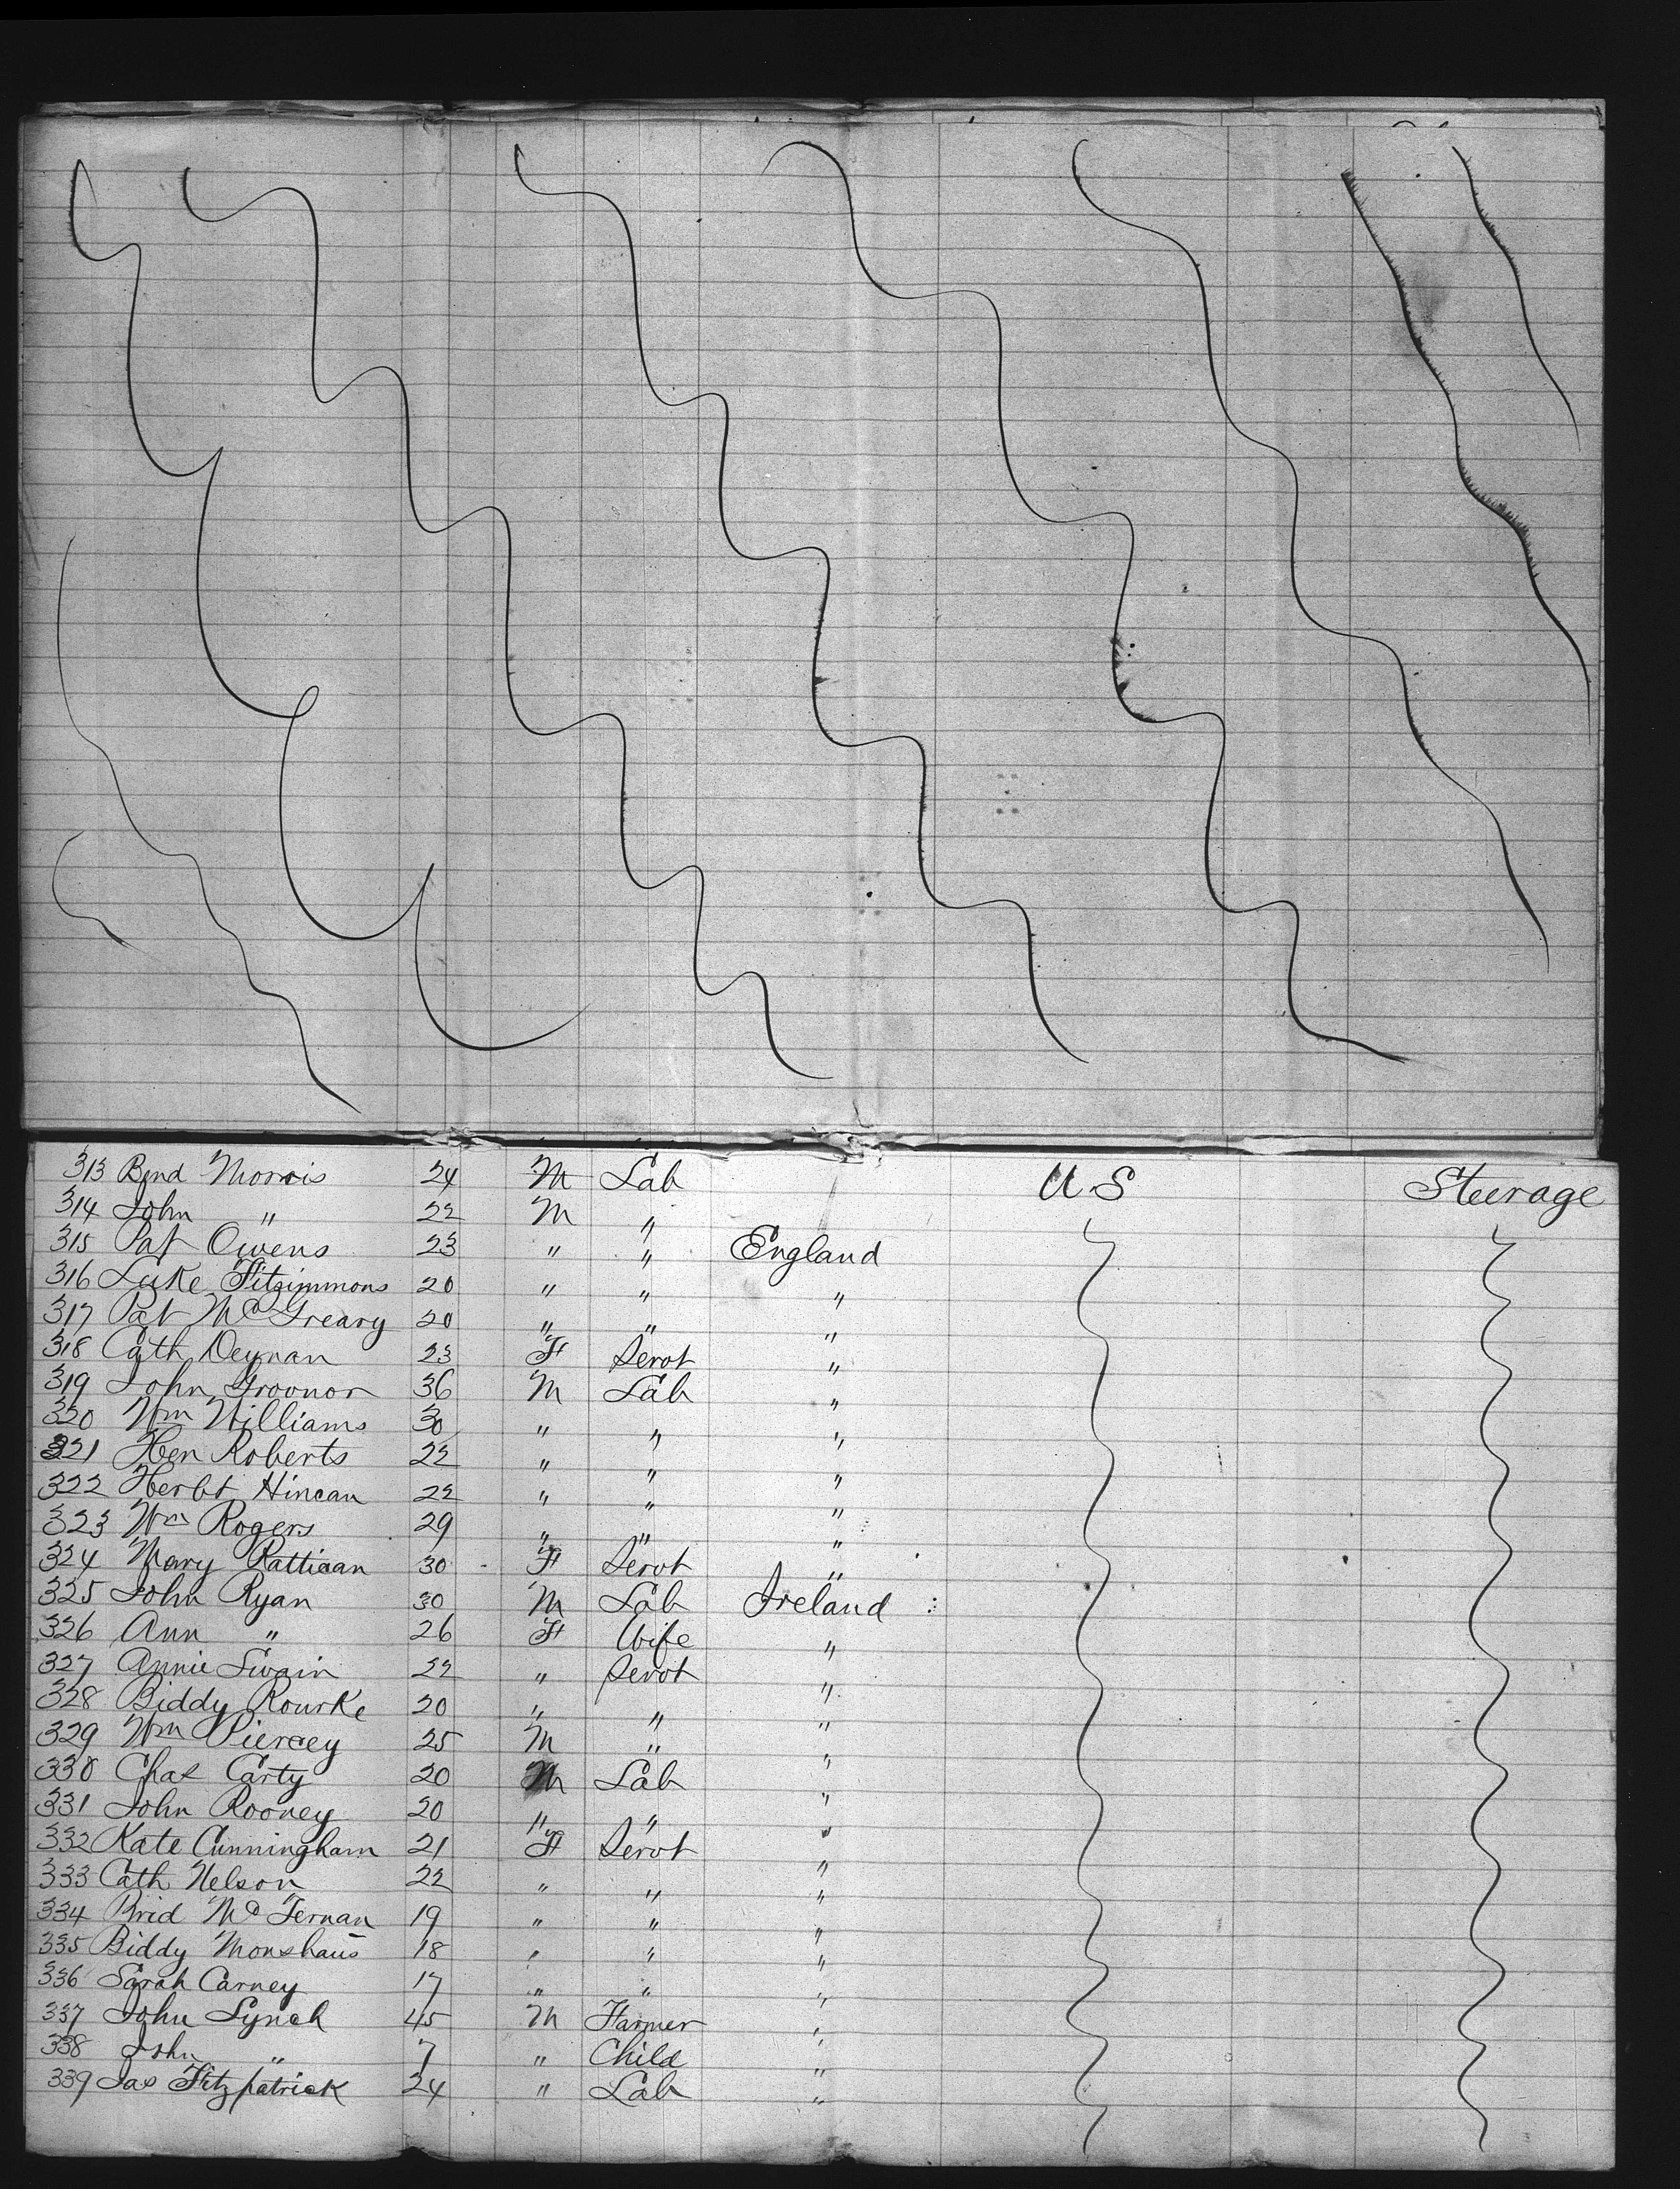 313 Bnd Morris 24 M Lab U.S Steerage
314 John " 22 M "
315 Pat Owens 23 " " England
316 Luke Fitzimmons 20 " " "
317 Pat Mc Greary 20 " " "
318 Cath Deynan 23 F Servt "
319 John Groonor 36 M Lab "
320 Wm Williams 30 " " "
321 Hen Roberts 22 " " "
322 Herbt Hincan 22 " " "
323 Wm Rogers 29 " " "
324 Mary Rattican 30 F Servt "
325 John Ryan 30 M Lab Ireland
326 Ann " 26 F Wife "
327 Annie Swain 22 " Servt "
328 Biddy Rourke 20 " " "
329 Wm Piercey 25 M " "
330 Chas Carty 20 M Lab "
331 John Rooney 20 " " "
332 Kate Cunningham 21 F Servt "
333 Cath Nelson 22 " " "
334 Brid Mc Ternan 19 " " "
335 Biddy 18 " " "
336 Sarah Carney 17 " " "
337 John Lynch 45 M Farmer "
338 John " 7 " Child "
339 Jas Fitzpatrick 24 " Lab "